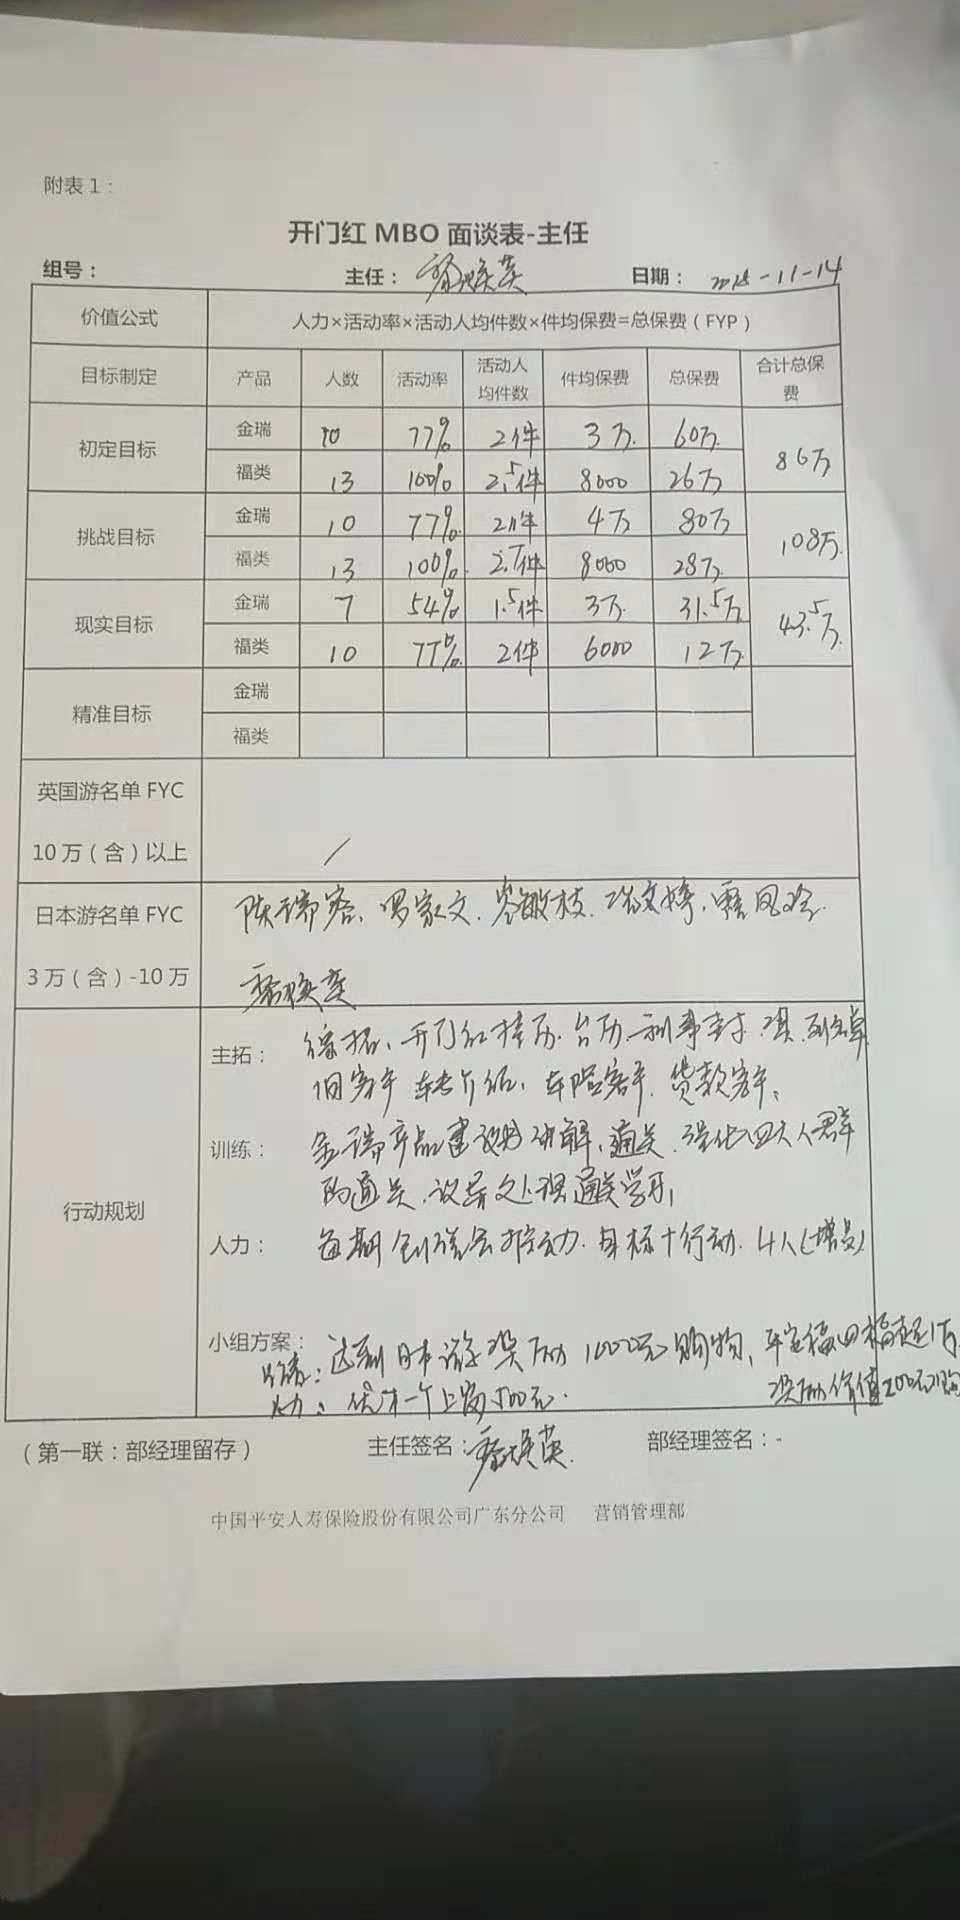 附表1：
开门红 MBO 面谈表-主任
组号： 主任： 日期： 2018-11-14
价值公式 人力×活动率×活动人均件数×件均保费=总保费（FYP）
目标制定 产品 人数 活动率 活动人均件数 件均保费 总保费 合计总保费
初定目标 金瑞 10 77% 2件 3万 60万 86万
福类 13 100% 2.5件 8000 26万
挑战目标 金瑞 10 77% 2件 4万 80万 108万
福类 13 100% 2.7件 8000 28万
现实目标 金瑞 7 54% 1.5件 3万 31.5万 43.5万
福类 10 77% 2件 6000 12万
精准目标 金瑞
福类
英国游名单 FYC
10万（含）以上
日本游名单 FYC
3万（含）-10万
行动规划
主拓： 综拓、开门红挂历、台历、利事封
旧客户转介绍、车险客户、贷款客户、
训练： 金瑞产品建议书讲解、通关、强化四大人群
的通关、议异处理通关学习
人力： 每期创说会推动、目标+行动、4人(增员)
小组方案：
达到日本游奖励1000元购物，平安福
上岗500元.
（第一联：部经理留存） 主任签名： 部经理签名：-
中国平安人寿保险股份有限公司广东分公司 营销管理部